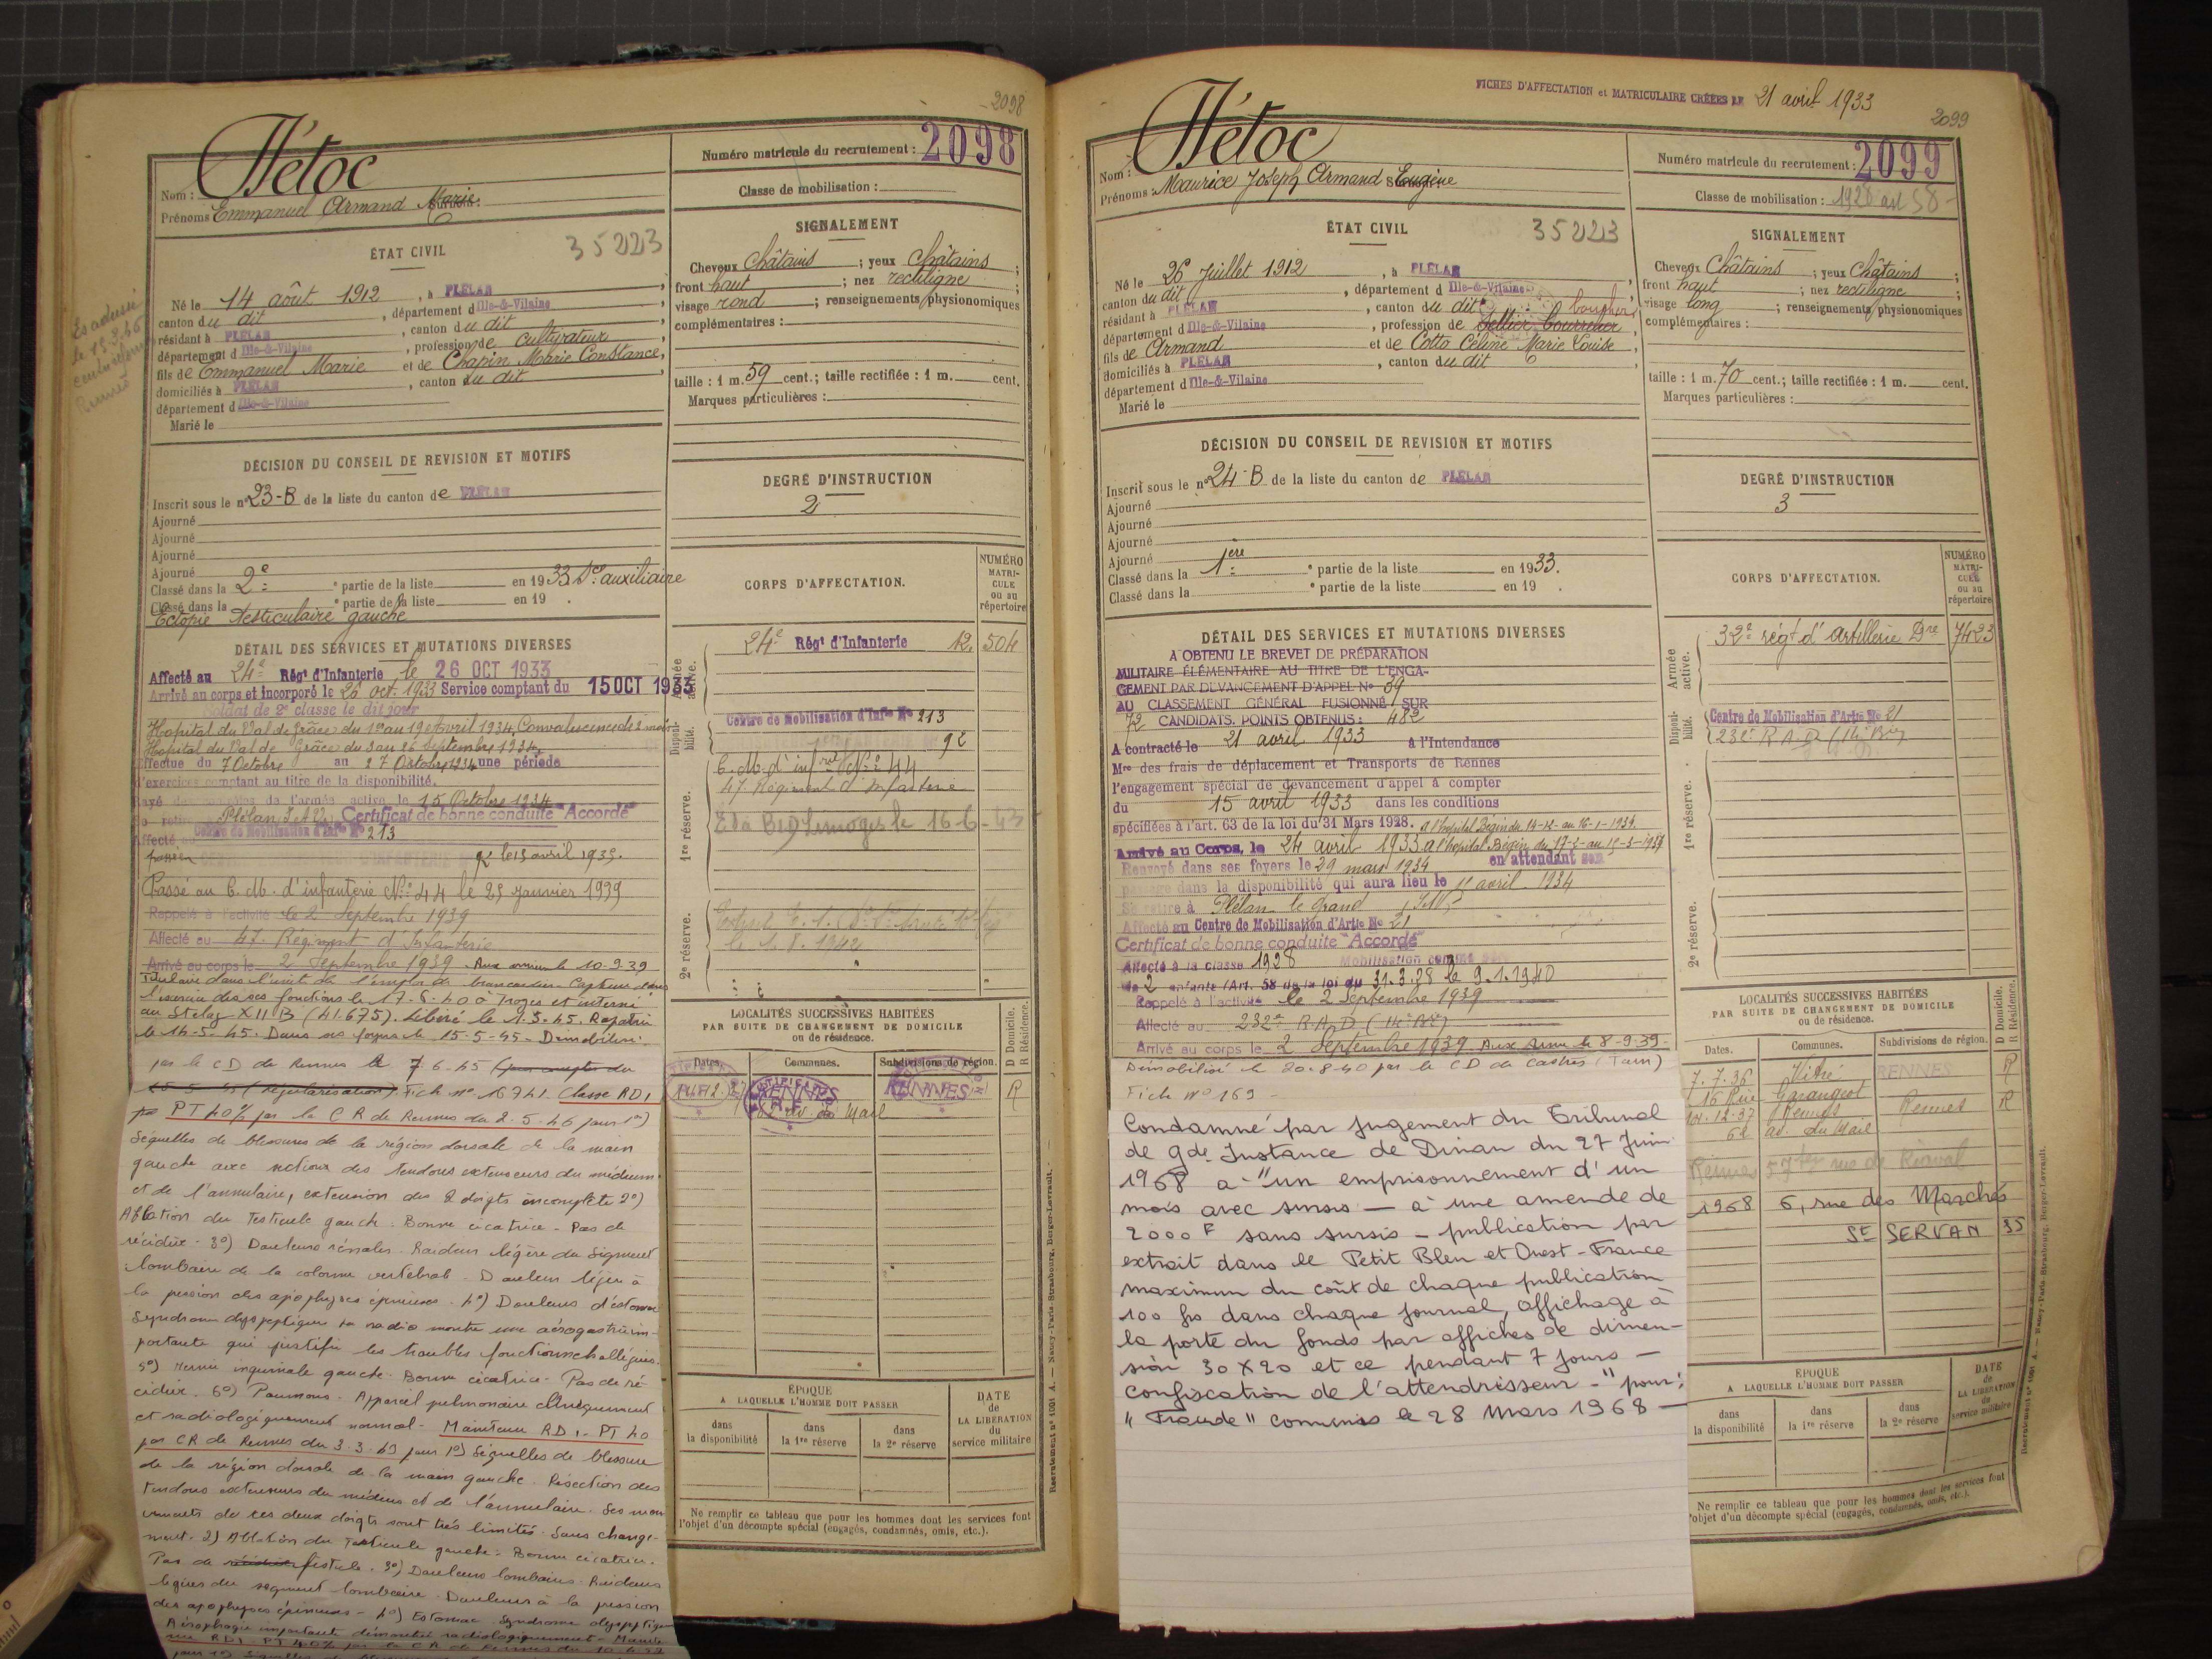 2098
Nom : Tétoc
Prénoms Emmanuel Armand Marie
Numéro matricule du recrutement : 2098
Classe de mobilisation :
ÉTAT CIVIL
35223
Né le 14 août 1912, à PLÉLAN
canton du dit, département d Ille-&-Vilaine
résidant à PLÉLAN, canton du dit
département d Ille-&-Vilaine, profession de cultivateur
fils de Emmanuel Marie et de Chapin Marie Constance,
domiciliés à PLÉLAN, canton du dit
département d Ille-&-Vilaine
Marié le
SIGNALEMENT
Cheveux Châtains ; yeux Châtains ;
front haut ; nez rectiligne ;
visage rond ; renseignements physionomiques
complémentaires :
taille : 1 m. 59 cent.; taille rectifiée : 1 m. cent.
Marques particulières :
DÉCISION DU CONSEIL DE REVISION ET MOTIFS
Inscrit sous le n° 23-B de la liste du canton de PLÉLAN
Ajourné
Ajourné
Ajourné
Ajourné
Classé dans la 2e partie de la liste en 1933 Sce auxiliaire
Classé dans la partie de la liste en 19 .
Ectopie testiculaire gauche
DEGRÉ D'INSTRUCTION
2
CORPS D'AFFECTATION.
NUMÉRO MATRICULE ou au répertoire
DÉTAIL DES SERVICES ET MUTATIONS DIVERSES
Affecté au 24e Régt d'Infanterie, le 26 OCT 1933
Arrivé au corps et incorporé le 26 oct. 1933 Service comptant du 15 OCT 1933
Soldat de 2e classe le dit jour
Hopital du Val de Grâce du 1er au 19 Avril 1934, Convalescence de 2 mois
Hopital du Val de Grâce du 3 au 26 Septembre 1934.
Effectue du 7 Octobre au 27 Octobre 1934 une période
d'exercices comptant au titre de la disponibilité.
Rayé des contrôles de l'armée active le 15 Octobre 1934
Plélan I.&V. Certificat de bonne conduite "Accordé"
Affecté au Centre de Mobilisation d'Infie No 213
le 15 avril 1935.
Passé au C. M. d'infanterie No 44 le 25 Janvier 1939
Rappelé à l'activité le 2 Septembre 1939
Affecté au 47e Régiment d'Infanterie
Arrivé au corps le 2 Septembre 1939. Aux armées le 10-9-39
l'exercice de ses fonctions le 17-6-40 à Troyes et interné
au Stalag XII B (41.675). Libéré le 1.5.45. Rapatrié
le 14-5-45. Dans ses foyers le 15-5-45 - Démobilisé
par le CD de Rennes le 7.6.45
(régularisation). Fiche n° 16741. Classé RD1
PT 40% par la C R de Rennes du 2-5-46 pour 1°)
Séquelles de blessures de la région dorsale de la main
gauche avec section des tendons extenseurs du médium
et de l'annulaire, extension des 2 doigts incomplète 2°)
Ablation du testicule gauche. Bonne cicatrice - Pas de
récidive - 3°) Douleurs rénales. Raideur légère du segment
lombaire de la colonne vertébrale - Douleur légère à
la pression des apophyses épineuses. 4°) Douleurs d'estomac
Syndrome dyspeptique. La radio montre une aérogastrie im-
portante qui justifie les troubles fonctionnels allégués.
5°) Hernie inguinale gauche. Bonne cicatrice - Pas de ré-
cidive. 6°) Poumons - Appareil pulmonaire cliniquement
et radiologiquement normal - Maintenu RD1 - PT 40
par CR de Rennes du 3.3.49 pour 1°) Séquelles de blessure
de la région dorsale de la main gauche. Résection des
tendons extenseurs du médius et de l'annulaire. Les mou-
vements de ces deux doigts sont très limités. Sans change-
ment. 2) Ablation du testicule gauche : Bonne cicatrice.
Pas de fistule. 3°) Douleurs lombaires. Raideurs
légères du segment lombaire. Douleurs à la pression
des apophyses épineuses - 4°) Estomac. Syndrome dyspeptique
Aérophagie importante démontrée radiologiquement - Mainte-
nu RD1 PT 40% par la C R de Rennes du
Armée active.
24e Régt d'Infanterie 12.504
Disponibilité.
Centre de Mobilisation d'Infie No 213
1re réserve.
C. M. d'inf No 44
47e Régiment d'Infanterie
BID Limoges le 16-6-43
2e réserve.
LOCALITÉS SUCCESSIVES HABITÉES
PAR SUITE DE CHANGEMENT DE DOMICILE
ou de résidence.
D Domicile. R Résidence.
Dates. Communes. Subdivisions de région.
RENNES
62 av. du Mail RENNES R
ÉPOQUE
A LAQUELLE L'HOMME DOIT PASSER
dans la disponibilité
dans la 1re réserve
dans la 2e réserve
DATE de LA LIBÉRATION du service militaire
Ne remplir ce tableau que pour les hommes dont les services font
l'objet d'un décompte spécial (engagés, condamnés, omis, etc.).
Recrutement n° 1001 A. — Nancy-Paris-Strasbourg, Berger-Levrault.
FICHES D'AFFECTATION et MATRICULAIRE CRÉÉES LE 21 avril 1933
2099
Nom : Tétoc
Prénoms : Maurice Joseph Armand Eugène
Numéro matricule du recrutement : 2099
Classe de mobilisation : 1928 art 58
ÉTAT CIVIL
35223
Né le 26 Juillet 1912, à PLÉLAN
canton du dit, département d Ille-&-Vilaine
résidant à PLÉLAN, canton du dit
département d Ille-&-Vilaine, profession de Sellier bourrelier
fils de Armand et de Cotto Céline Marie Louise
domiciliés à PLÉLAN, canton du dit
département d Ille-&-Vilaine
Marié le
SIGNALEMENT
Cheveux Châtains ; yeux Châtains ;
front haut ; nez rectiligne ;
visage long ; renseignements physionomiques
complémentaires :
taille : 1 m. 70 cent.; taille rectifiée : 1 m. cent.
Marques particulières :
DÉCISION DU CONSEIL DE REVISION ET MOTIFS
Inscrit sous le n° 24-B de la liste du canton de PLÉLAN
Ajourné
Ajourné
Ajourné
Ajourné
Classé dans la 1ère partie de la liste en 1933.
Classé dans la partie de la liste en 19 .
DEGRÉ D'INSTRUCTION
3
CORPS D'AFFECTATION.
NUMÉRO MATRICULE ou au répertoire
DÉTAIL DES SERVICES ET MUTATIONS DIVERSES
A OBTENU LE BREVET DE PRÉPARATION
MILITAIRE ÉLÉMENTAIRE AU TITRE DE L'ENGA-
GEMENT PAR DEVANCEMENT D'APPEL No 59
AU CLASSEMENT GÉNÉRAL FUSIONNÉ SUR
72 CANDIDATS. POINTS OBTENUS : 482
A contracté le 21 avril 1933 à l'Intendance
Mre des frais de déplacement et Transports de Rennes
l'engagement spécial de devancement d'appel à compter
du 15 avril 1933 dans les conditions
spécifiées à l'art. 63 de la loi du 31 Mars 1928. a l'hopital Bégin du 14-12- au 16-1-1934.
Arrivé au Corps, le 24 avril 1933. a l'hopital Bégin du 17-2- au 15-3-1934
Renvoyé dans ses foyers le 29 mars 1934 en attendant son
passage dans la disponibilité qui aura lieu le 15 avril 1934
Se retire à Plélan le Grand, I.&V.
Affecté au Centre de Mobilisation d'Artie No 21
Certificat de bonne conduite "Accordé"
Affecté à la classe 1928 Mobilisation comme père
de 2 enfants (Art. 58 de la loi du 31.3.28 le 9.1.1940
Rappelé à l'activité le 2 Septembre 1939
Affecté au 232e R.A.D.
Arrivé au corps le 2 Septembre 1939. Aux Arm le 8-9-39-
Démobilisé le 20.8.40 par le CD de Castres (Tarn)
Fiche N° 169 -
Condamné par jugement du Tribunal
de gde Instance de Dinan du 27 Juin
1968 à "un emprisonnement d'un
mois avec sursis — à une amende de
2000 F sans sursis - publication par
extrait dans le Petit Bleu et Ouest-France
maximum du coût de chaque publication
100 frs dans chaque journal, affichage à
la porte du fonds par affiches de dimen-
sion 30 X 20 et ce pendant 7 jours —
confiscation de l'attendrisseur -" pour :
"Fraude" commis le 28 Mars 1968 —
Armée active.
32e régt d'Artillerie Dre 7423
Disponibilité.
Centre de Mobilisation d'Artie No 21
232e R.A.D.
1re réserve.
2e réserve.
LOCALITÉS SUCCESSIVES HABITÉES
PAR SUITE DE CHANGEMENT DE DOMICILE
ou de résidence.
D Domicile. R Résidence.
Dates. Communes. Subdivisions de région.
7.7.36 Vitré RENNES R
16 Rue Garangeot
14.12.37 Rennes Rennes R
62 av. du Mail
Rennes 57 rue de
1968 6, rue des Marchés
St SERVAN 35
ÉPOQUE
A LAQUELLE L'HOMME DOIT PASSER
dans la disponibilité
dans la 1re réserve
dans la 2e réserve
DATE de LA LIBÉRATION du service militaire
Ne remplir ce tableau que pour les hommes dont les services font
l'objet d'un décompte spécial (engagés, condamnés, omis, etc.).
Recrutement n° 1001 A. — Nancy-Paris-Strasbourg, Berger-Levrault.